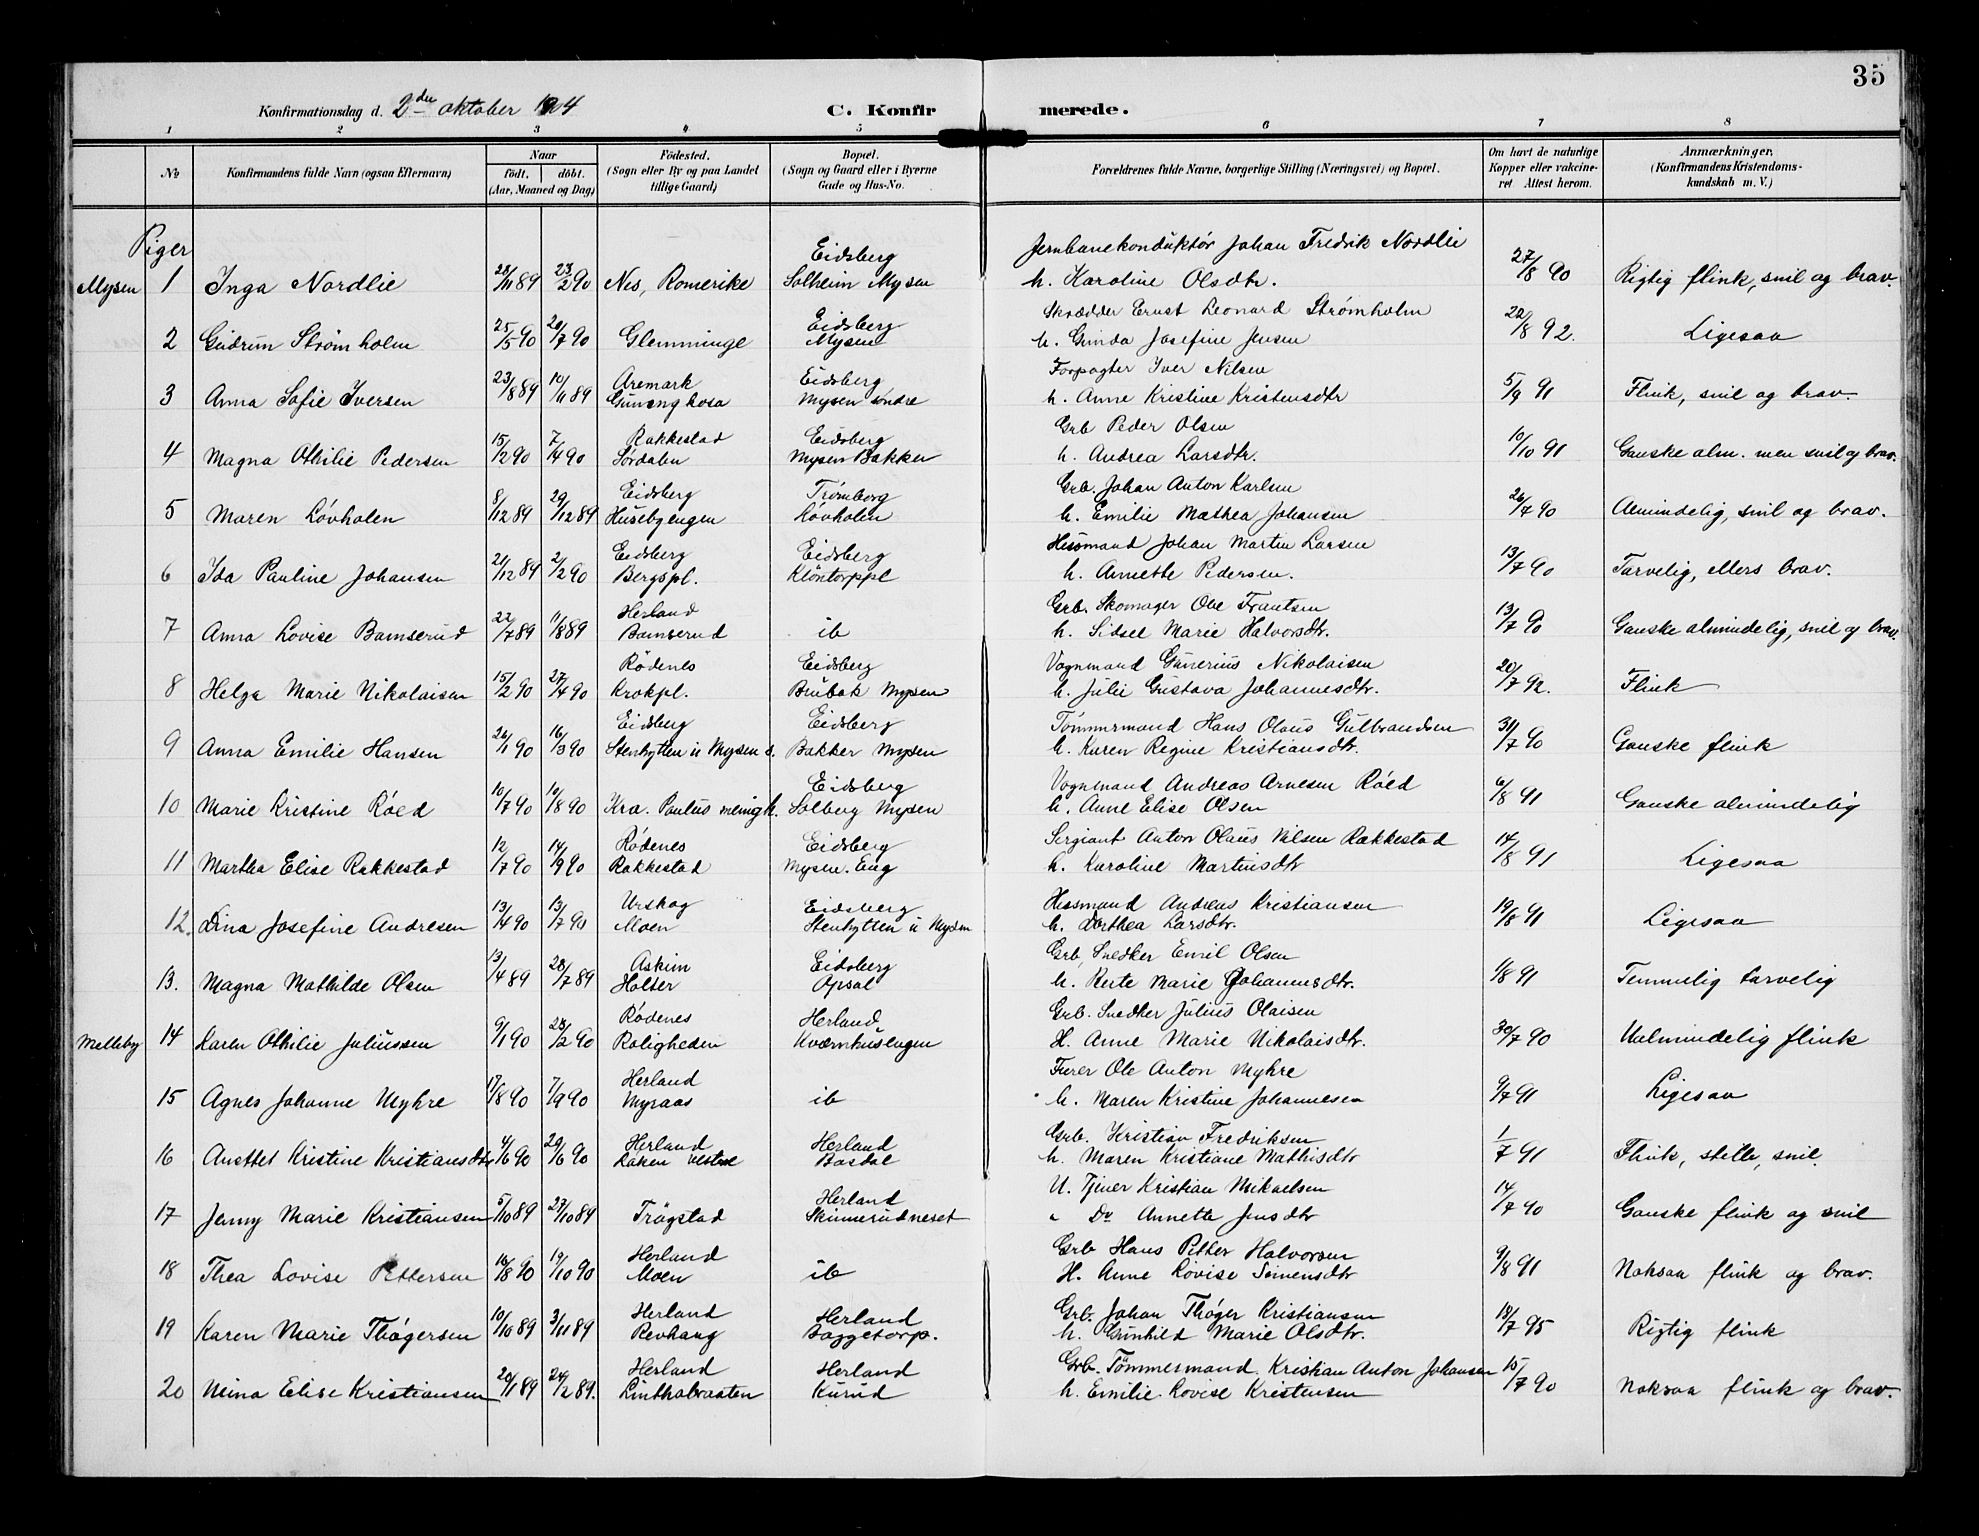 35
Konfirmationsdag d. 2den oktober 1904 C. Konfirmerede.
1 2 3 4 5 6 7 8
No Konfirmandens fulde Navn (ogsaa Efternavn) Naar født. døbt. (Aar, Maaned og Dag) Fødested. (Sogn eller By og paa Landet tillige Gaard) Bopæl. (Sogn og Gaard eller i Byerne Gade og Hus-No. Forældrenes fulde Navne, borgerlige Stilling (Næringsvei) og Bopæl. Om havt de naturlige Kopper eller vakcineret. Attest herom. Anmærkninger, (Konfirmandens Kristendomskundskab m. V.)
Piger
Eidsberg Jernbanekonduktør Johan Fredrik Nordlie
Mysen 1 Inga Nordlie 28/11 89 23/2 90 Nes, Romerike Solheim Mysen h. Karoline Olsdtr. 27/8 90 Rigtig flink, snil og brav.
Eidsberg Skrædder Ernst Leonard Strømholm
2 Gudrun Strømholm 25/5 90 20/7 90 Glemminge Mysen h. Gunda Josefine Jensen 22/8 92. Ligesaa
Aremark Eidsberg Forpagter Iver Nilsen
3 Anna Sofie Iversen 23/8 89 10/11 89 Mysen søndre h. Anne Kristine Kristensdtr 5/9 91 Flink, snil og brav.
Rakkestad Eidsberg Grb Peder Olsen
4 Magna Othilie Pedersen 15/2 90 7/4 90 Sørdalen Mysen Bakker h. Andrea Larsdtr. 10/10 91 Ganske alm. men snil og brav.
Eidsberg Trømborg Grb. Johan Anton Karlsen
5 Maren Løvholen 8/12 89 29/12 89 Husebyengen Løvholen h. Emilie Mathea Johansen 26/7 90 Almindelig, snil og brav.
Eidsberg Eidsberg Husmand Johan Martin Larsen
6 Ida Pauline Johansen 21/12 89 2/2 90 Bergspl. Kløntorppl h. Annette Pedersen. 13/7 90 Tarvelig, ellers brav.
Herland Grb. Skomager Ole Frantsen
7 Anna Lovise Bamserud 22/7 89 11/8 89 Bamserud ib h. Sidsel Marie Halvorsdtr. 13/7 90 Ganske almindelig, snil og brav.
Rødenes Eidsberg Vognmand Gunerius Nikolaisen
8 Helga Marie Nikolaisen 15/2 90 27/4 90 Krokpl. Brubak Mysen h. Julie Gustava Johannesdtr. 20/7 92. Flink
Eidsberg Eidsberg Tømmermand Hans Olaus Gulbrandsen
9 Anna Emilie Hansen 26/1 90 16/3 90 Stenhytten u Mysen s. Bakker Mysen h. Karen Regine Kristiansdtr. 31/7 90 Ganske flink
Eidsberg Vognmand Andreas Arnesen Røed
10 Marie Kristine Røed 10/7 90 10/8 90 Kra. Paulus menigh. Solberg Mysen h. Anne Elise Olsen 6/8 91 Ganske almindelig
Rødenes Eidsberg Sergiant Anton Olaus Nilsen Rakkestad
11 Martha Elise Rakkestad 12/7 90 14/9 90 Rakkestad Mysen. Eng h. Karoline Martinsdtr 14/8 91 Ligesaa
Urskog Eidsberg Husmand Andreas Kristiansen
12. Dina Josefine Andresen 13/4 90 13/7 90 Moen Stenhytten u Mysen h. Dorthea Larsdtr. 19/8 91 Ligesaa
Askim Eidsberg Grb. Snedker Emil Olsen
13. Magna Mathilde Olsen 13/4 89 28/7 89 Holter Opsal h. Berte Marie Johannesdtr. 1/8 91 Temmelig tarvelig
Rødenes Herland Grb. Snedker Julius Olaisen
Melleby 14 Karen Othilie Juliussen 9/1 90 23/2 90 Roligheden Kværnhusengen H. Anne Marie Nikolaisdtr. 30/7 90 Ualmindelig flink
Herland Furer Ole Anton Myhre
15 Agnes Johanne Myhre 17/8 90 7/9 90 Myraas ib h. Maren Kristine Johannesen 9/7 91 Ligesaa
Herland Herland Grb. Kristian Fredriksen
16 Anettet Kristine Kristiansdtr 4/6 90 29/6 90 Laken vestre Basdal h. Maren Kristiane Mathisdtr 1/7 91 Flink, stille, snil.
Herland U. Tjener Kristian Mikaelsen
17 Jenny Marie Kristiansen 5/10 89 27/10 89 Trøgstad Skinnerudneset " Do Annette Jensdtr 14/7 90 Ganske flink og snil
Herland Grb Hans Petter Halvorsen
18 Thea Lovise Pettersen 16/8 90 19/10 90 Moen ib H. Anne Lovise Simensdtr 9/8 91 Noksaa flink og brav.
Herland Herland Grb. Johan Thøger Kristiansen
19 Karen Marie Thøgersen 10/10 89 3/11 89 Revhaug Baggetorp. h. Gunhild Marie Olsdtr. 18/7 95 Rigtig flink
Herland Herland Grb. Tømmermand. Kristian Anton Johansen
20 Mina Elise Kristiansen 20/1 89 24/2 89. Linthalbraaten Kurud h. Emilie Lovise Kristensen 15/7 90 Noksaa flink og brav.